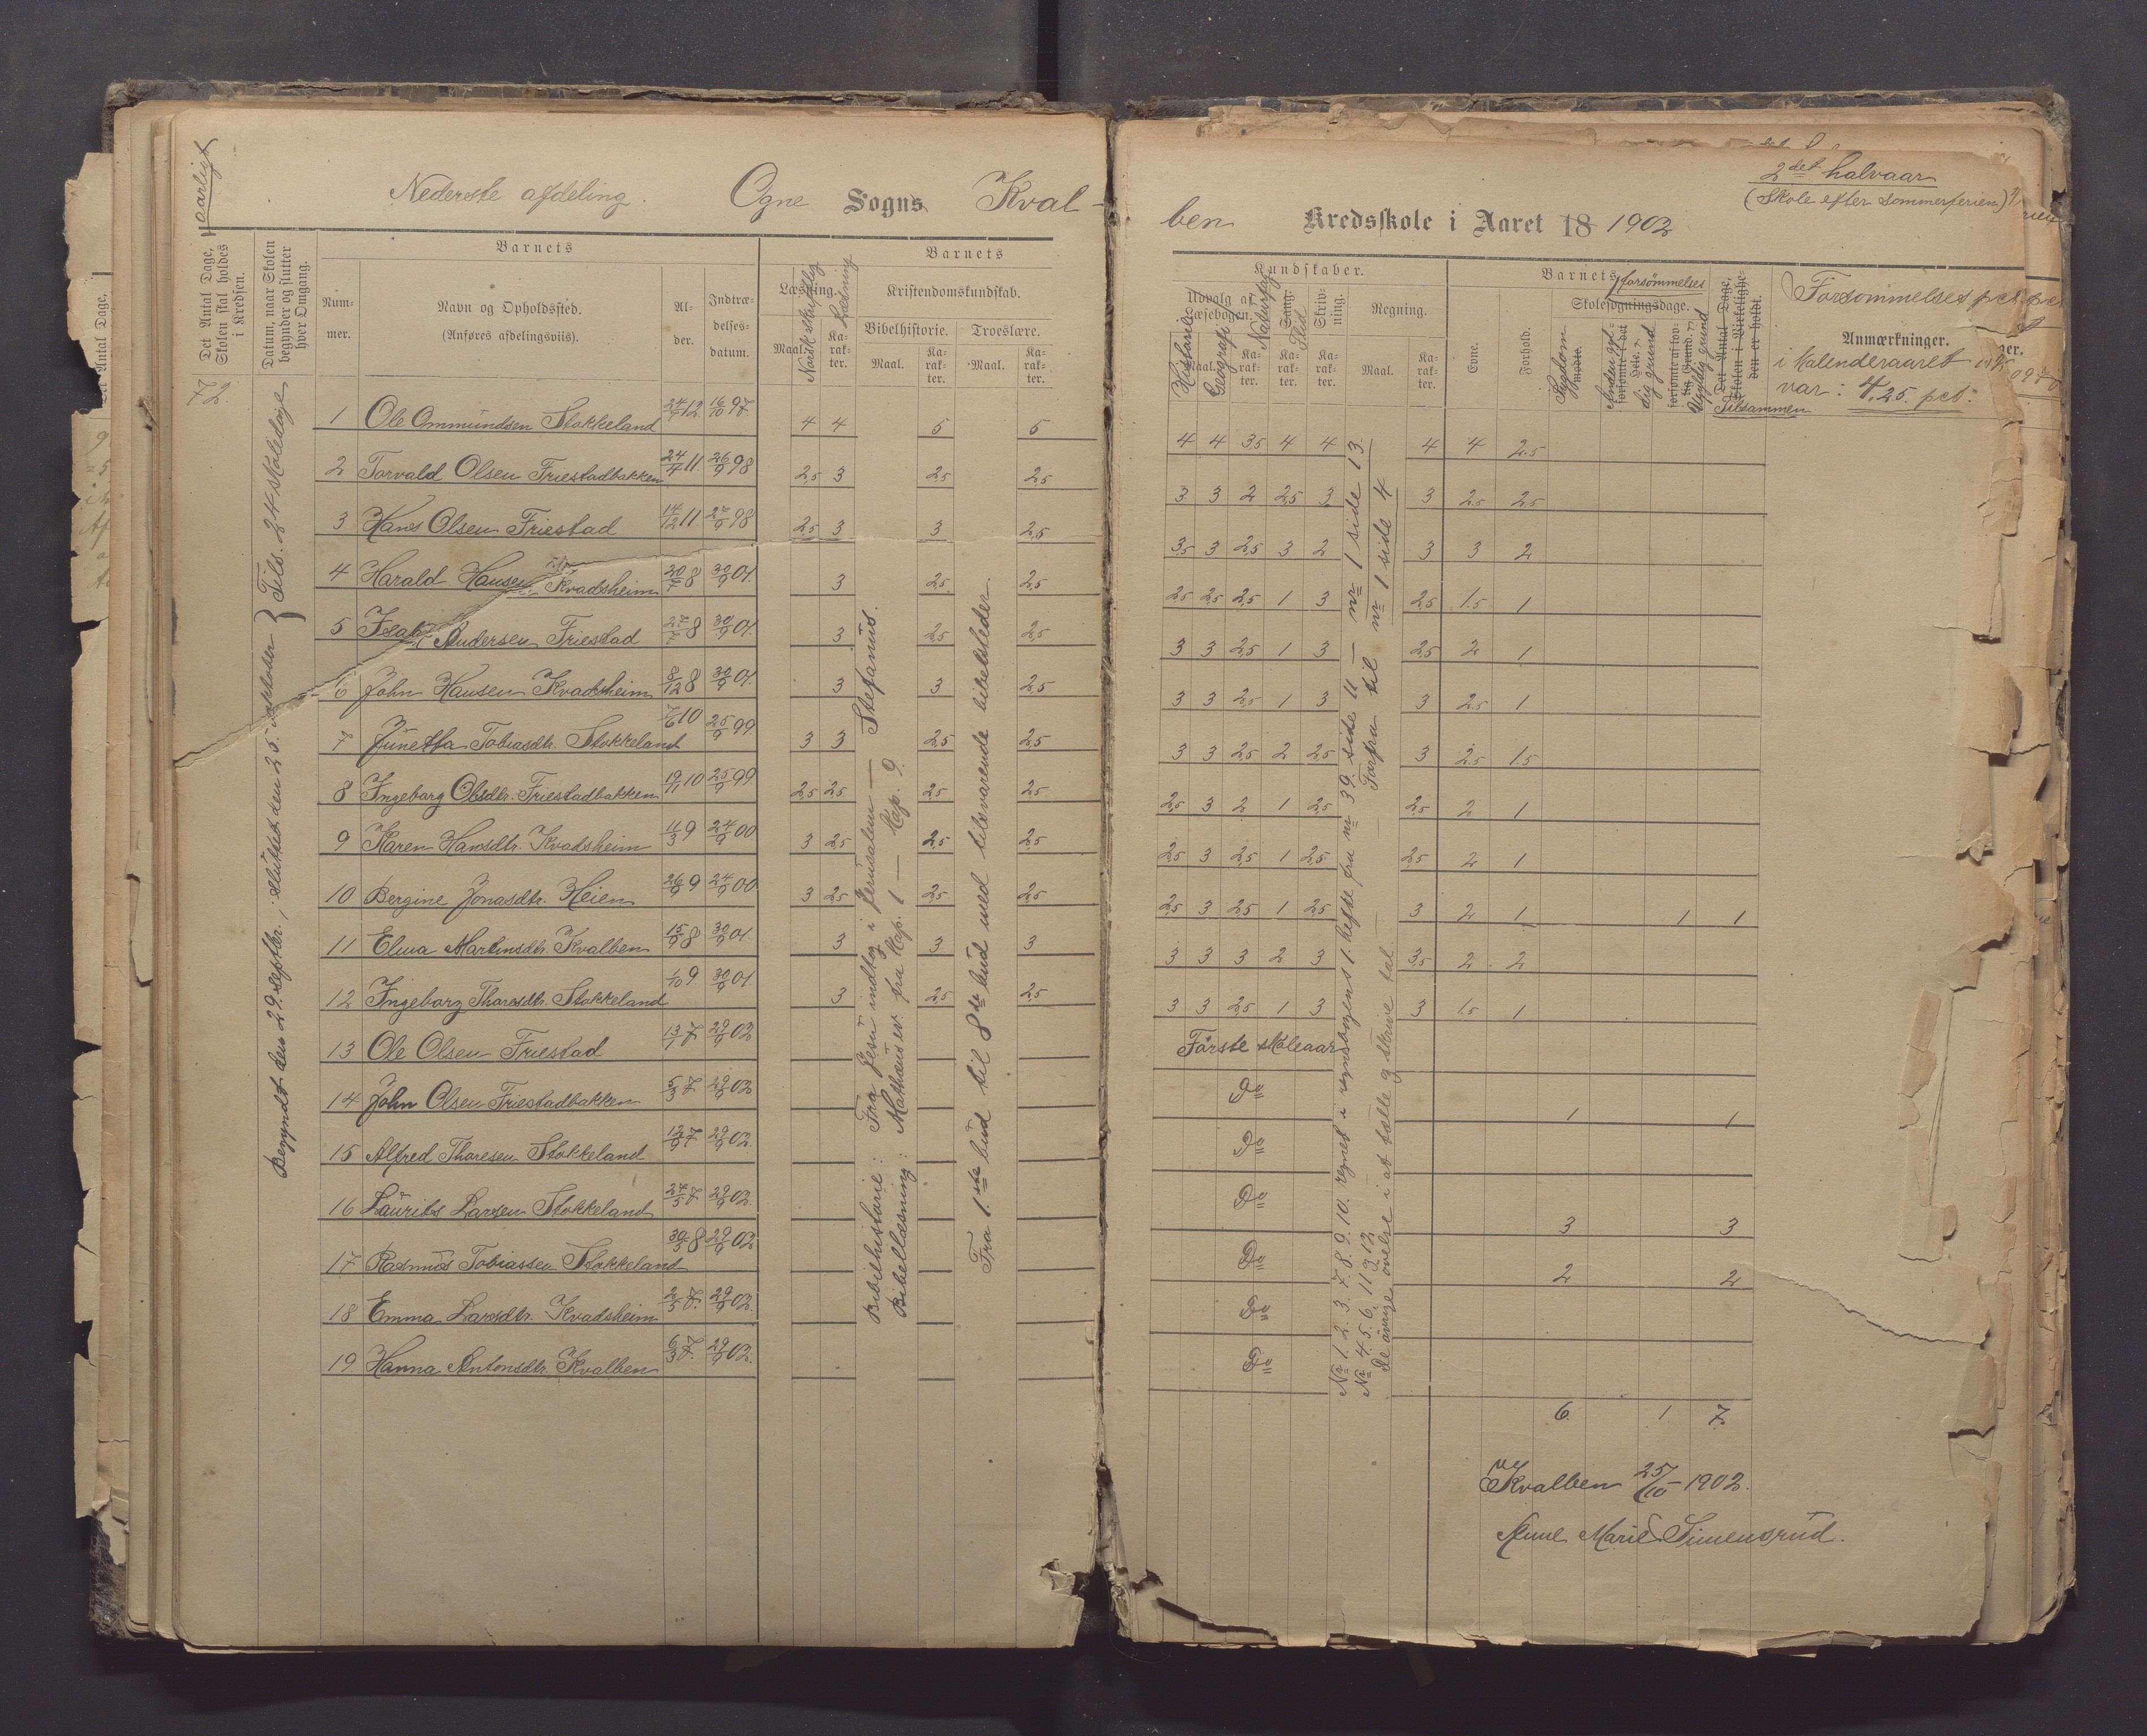 aarligt
Nederste afdeling. Ogne Sogns Kval-
Det Antal Dage, Skolen skal holdes i Kredsen.
Datum, naar Skolen begynder og slutter hver Omgang.
Barnets
Num-mer.
Navn og Opholdssted.
(Anføres afdelingsviis).
Al-der.
Indtræ-delses-datum.
Barnets
Læsning.
Maal.
Norsk skriftlig
Ka-rak-ter.
Læsning
Kristendomskundskab.
Bibelhistorie.
Troeslære.
Maal.
Ka-rak-ter.
Maal.
Ka-rak-ter.
72.
Begyndt den 29. septbr.; sluttet den 25. oktober } Tils. 24 skoledage
1 Ole Ommundsen Stokkeland 24/7 12 16/10 97. 4 4 5 5
2 Torvald Olsen Friestadbakken 24/4 11 26/9 98 2,5 3 2,5 2,5
3 Hans Olsen Friestad 14/12 11 27/9 98 2,5 3 3 2,5
4 Harald Hansen Kvadsheim 20/7 8 30/9 01. 3 2,5 2,5
5 Isak Andersen Friestad 27/7 8 30/9 01. 3 2,5 2,5
6 John Hansen Kvadsheim 8/12 8 30/9 01. 3 3 2,5
7 Junetta Tobiasdtr. Stokkeland 7/6 10 25/9 99 3 3 2,5 2,5
8 Ingeborg Olsdtr. Friestadbakken 19/11 10 25/9 99 2,5 2,5 2,5 2,5
9 Karen Hansdtr. Kvadsheim 11/3 9 24/9 00 3 2,5 2,5 2,5
10 Bergine Jonasdtr. Heien 26/9 9 24/9 00 3 2,5 2,5 2,5
11 Elina Martinsdtr. Kvalben 15/9 8 30/9 01 3 3 3
12 Ingeborg Tharesdtr. Stokkeland 1/10 9. 30/9 01. 3 2,5 2,5
13 Ole Olsen Friestad 13/1 7 29/9 02
14 John Olsen Friestadbakken 5/3 7 29/9 02
15 Alfred Tharesen Stokkeland 12/9 7 29/9 02.
16 Laurits Larsen Stokkeland 24/5 7 29/9 02.
17 Rasmus Tobiassen Stokkeland 30/5 8 29/9 02
18 Emma Larsdtr. Kvadsheim 2/5 7. 29/9 02.
19. Hanna Antonsdtr. Kvalben 6/3 7. 29/9 02.
Bibelhistorie: Fra Jesu indtog i Jerusalem — Stefanus.
Bibellæsning: Mathæus ev. fra Kap. 1 — Kap. 9.
Fra 1.ste bud til 8de bud med tilsvarende bibelsteder.
2det halvaar
(Skole efter sommerferien)
ben Kredsskole i Aaret 18 1902
Kundskaber.
Udvalg af Læsebogen.
Maal.
Historie
Geografi
Ka-rak-ter.
Naturfag
Sang.
Ka-rak-ter.
Skriv-ning.
Ka-rak-ter.
Regning.
Maal.
Ka-rak-ter.
Evne.
Forhold.
Barnets
forsømmelses
Skolesøgningsdage.
Sygdom
mødte.
Anden gyl-dig grund
Ugyldig grund
Det Antal Dage, Skolen i Virkelighe-den er holdt.
Tilsammen
Forsømmelses pct
Anmærkninger.
i Kalenderaaret
var: 4,25. pct.
4 4 3,5 4 4 4 4 2.5
3 3 2 2,5 3 3 2.5 2,5
3,5 3 2,5 3 2 3 3 2
2,5 2,5 2,5 1 3 2,5 1.5 1
3 3 2,5 1 3 2,5 2 1
3 3 2,5 1 3 3 2.5 1
3 3 2,5 2 2,5 3 2.5 1.5
2,5 3 2 1 2,5 2,5 2 1
2,5 3 2,5 1 2,5 2,5 2 1
2,5 3 2,5 1 2,5 3 2 1 1 1
3 3 3 2 3 3,5 2 2
3 3 2,5 1 3 3 1.5 1
Første skoleaar
Do 1 1
Do
Do 3 3
Do 2 2
Do
Do
Nr 1. 2. 3. 7. 8. 9. 10. regnet i regnebogens 1. hefte fra nr 39. side 11 — nr 1 side 13.
Nr 4. 5. 6. 11 og 12 — Forfra til nr 1 side 4
De øvrige øvelse i at tælle og skrive tal
6. 1. 7.
Kvalben 25/10 1902.
Anne Marie Simensrud.